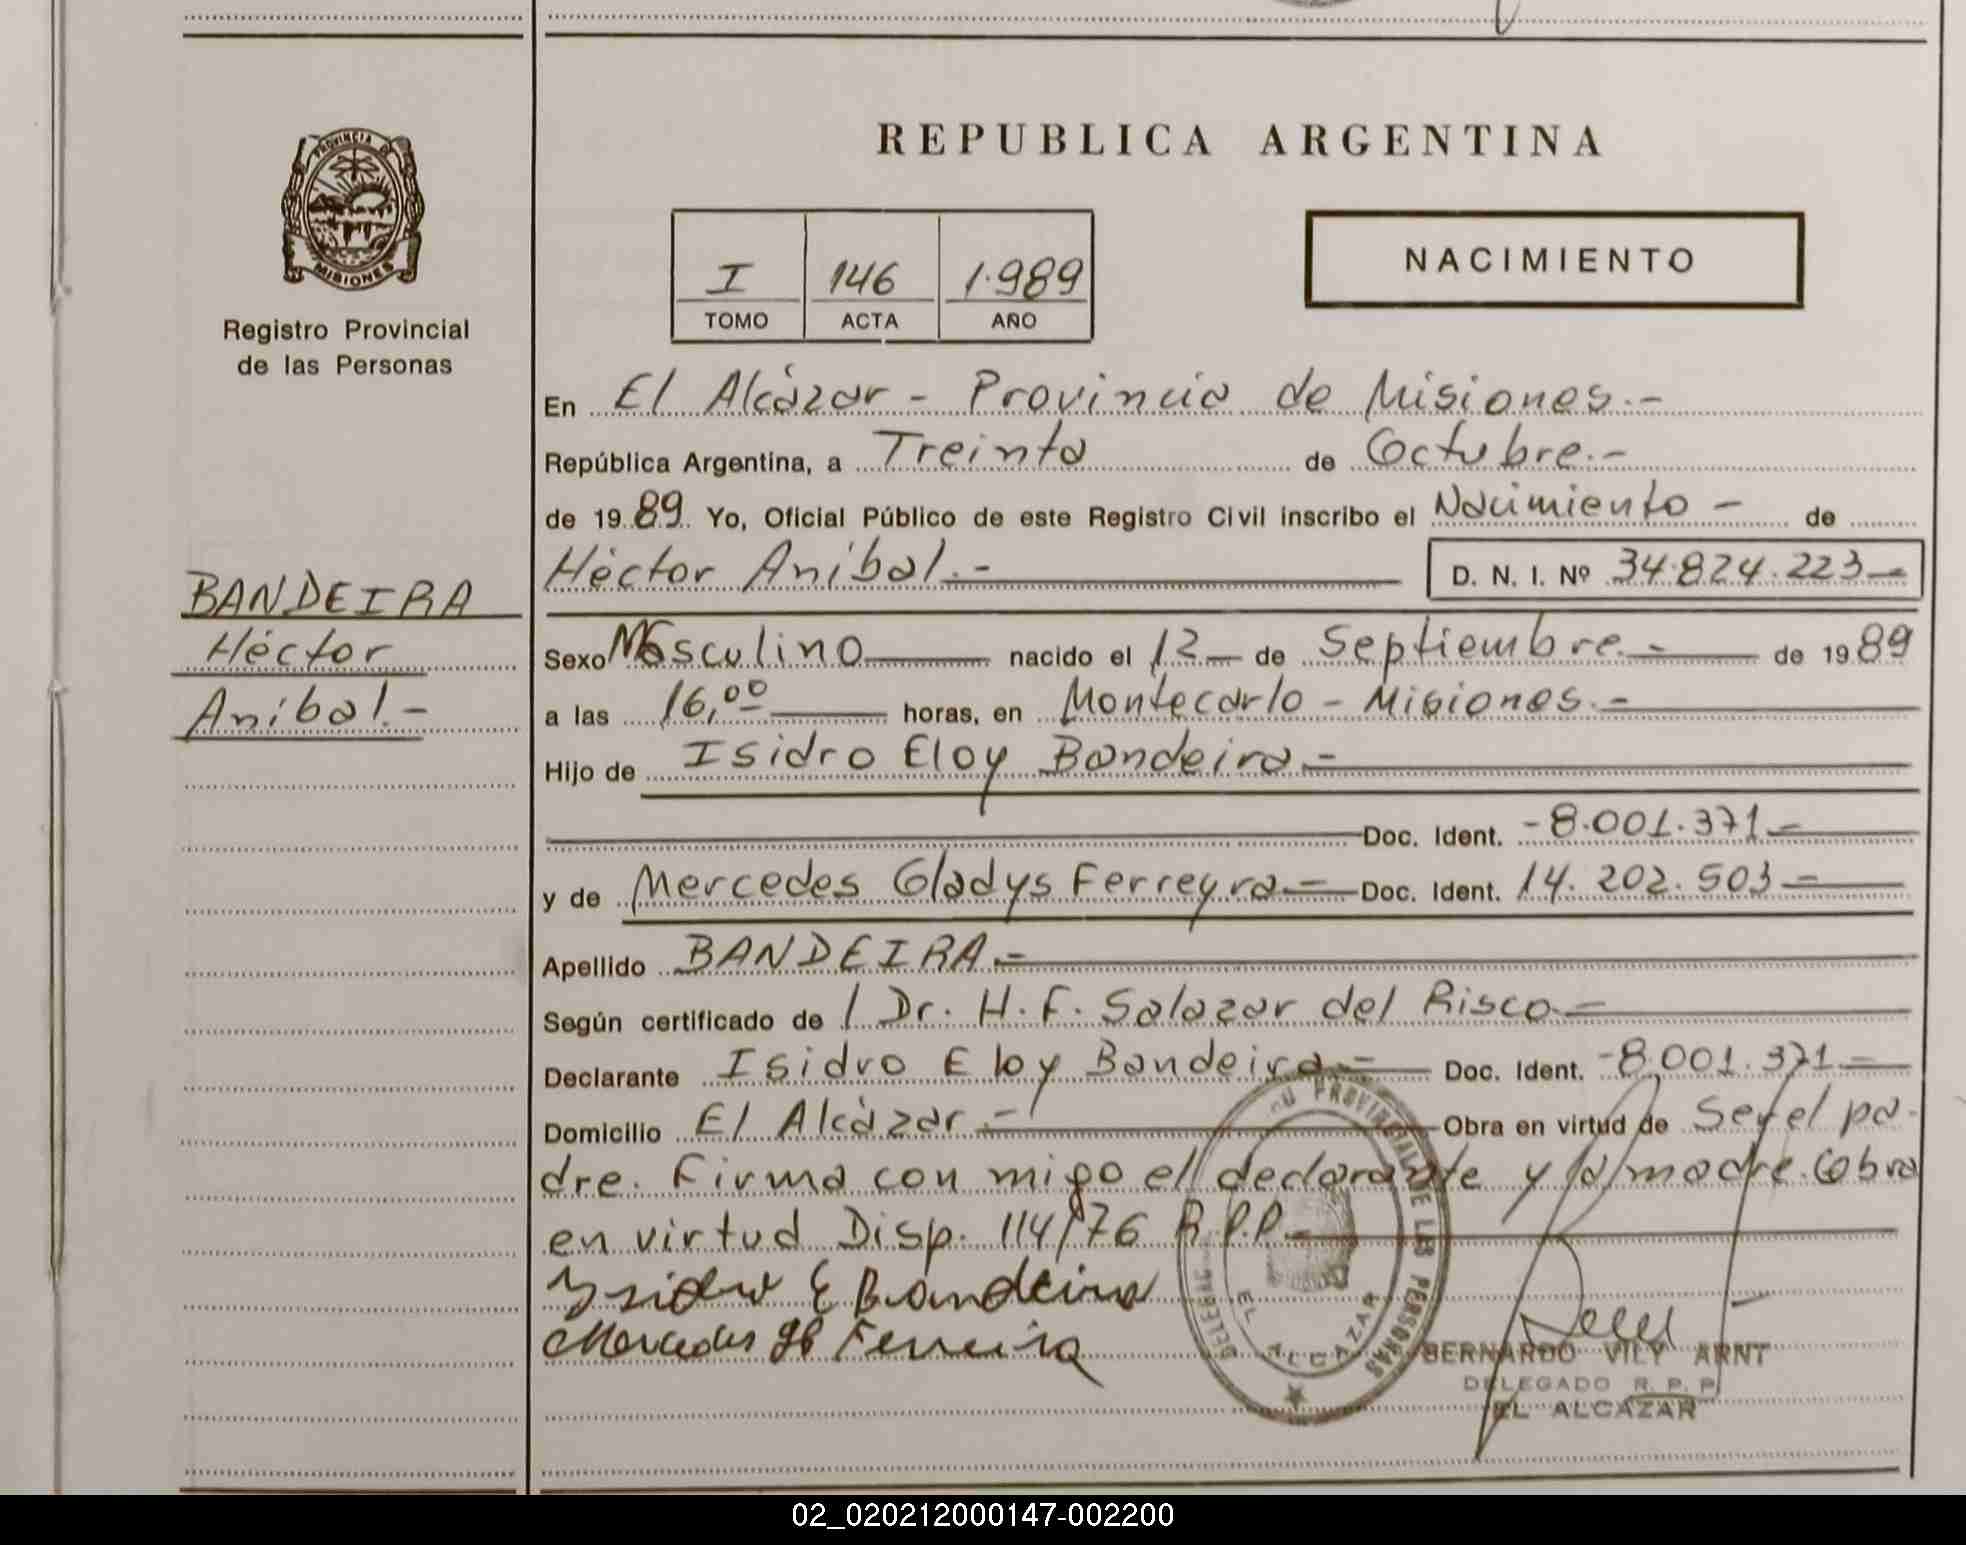 PROVINCIA DE
MISIONES
Registro Provincial
de las Personas
BANDEIRA
Héctor
Aníbal.-
REPUBLICA ARGENTINA
I 146 1.989
TOMO ACTA AÑO
NACIMIENTO
En El Alcázar - Provincia de Misiones.-
República Argentina, a Treinta de Octubre.-
de 1989 Yo, Oficial Público de este Registro Civil inscribo el Nacimiento - de
Héctor Aníbal.- D. N. I. Nº 34.824.223-
Sexo Masculino nacido el 12 de Septiembre.- de 1989
a las 16,00 horas, en Montecarlo - Misiones.-
Hijo de Isidro Eloy Bandeira.-
Doc. Ident. -8.001.371-
y de Mercedes Gladys Ferreyra- Doc. Ident. 14.202.503-
Apellido BANDEIRA.-
Según certificado de / Dr. H. F. Salazar del Risco-
Declarante Isidro Eloy Bandeira- Doc. Ident. -8.001.371-
Domicilio El Alcázar.- Obra en virtud de Ser el pa-
dre. Firma con migo el declarante y la madre. Obra
en virtud Disp. 114/76 R.P.P.-
Ysidro E Bandeira
Mercedes Ferreira
PROVINCIAL DE LAS PERSONAS
EL ALCAZAR
BERNARDO VILY ARNT
DELEGADO R. P. P.
EL ALCAZAR
02_020212000147-002200